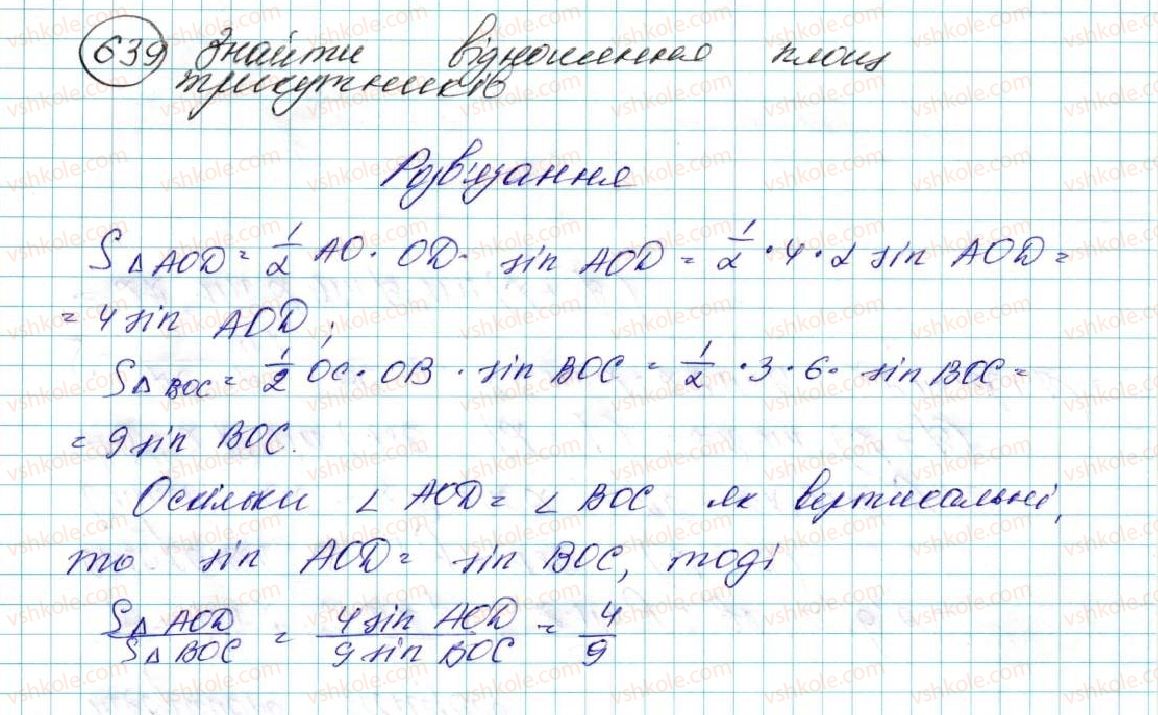 639 Знайти відношення площ
трикутників
Розв'язання
S△AOD = 1/2 AO · OD · sin AOD = 1/2 · 4 · 2 sin AOD =
= 4 sin AOD;
S△BOC = 1/2 OC · OB · sin BOC = 1/2 · 3 · 6 · sin BOC =
= 9 sin BOC.
Оскільки ∠ AOD = ∠ BOC як вертикальні,
то sin AOD = sin BOC, тоді
S△ AOD / S△ BOC = 4 sin AOD / 9 sin BOC = 4/9